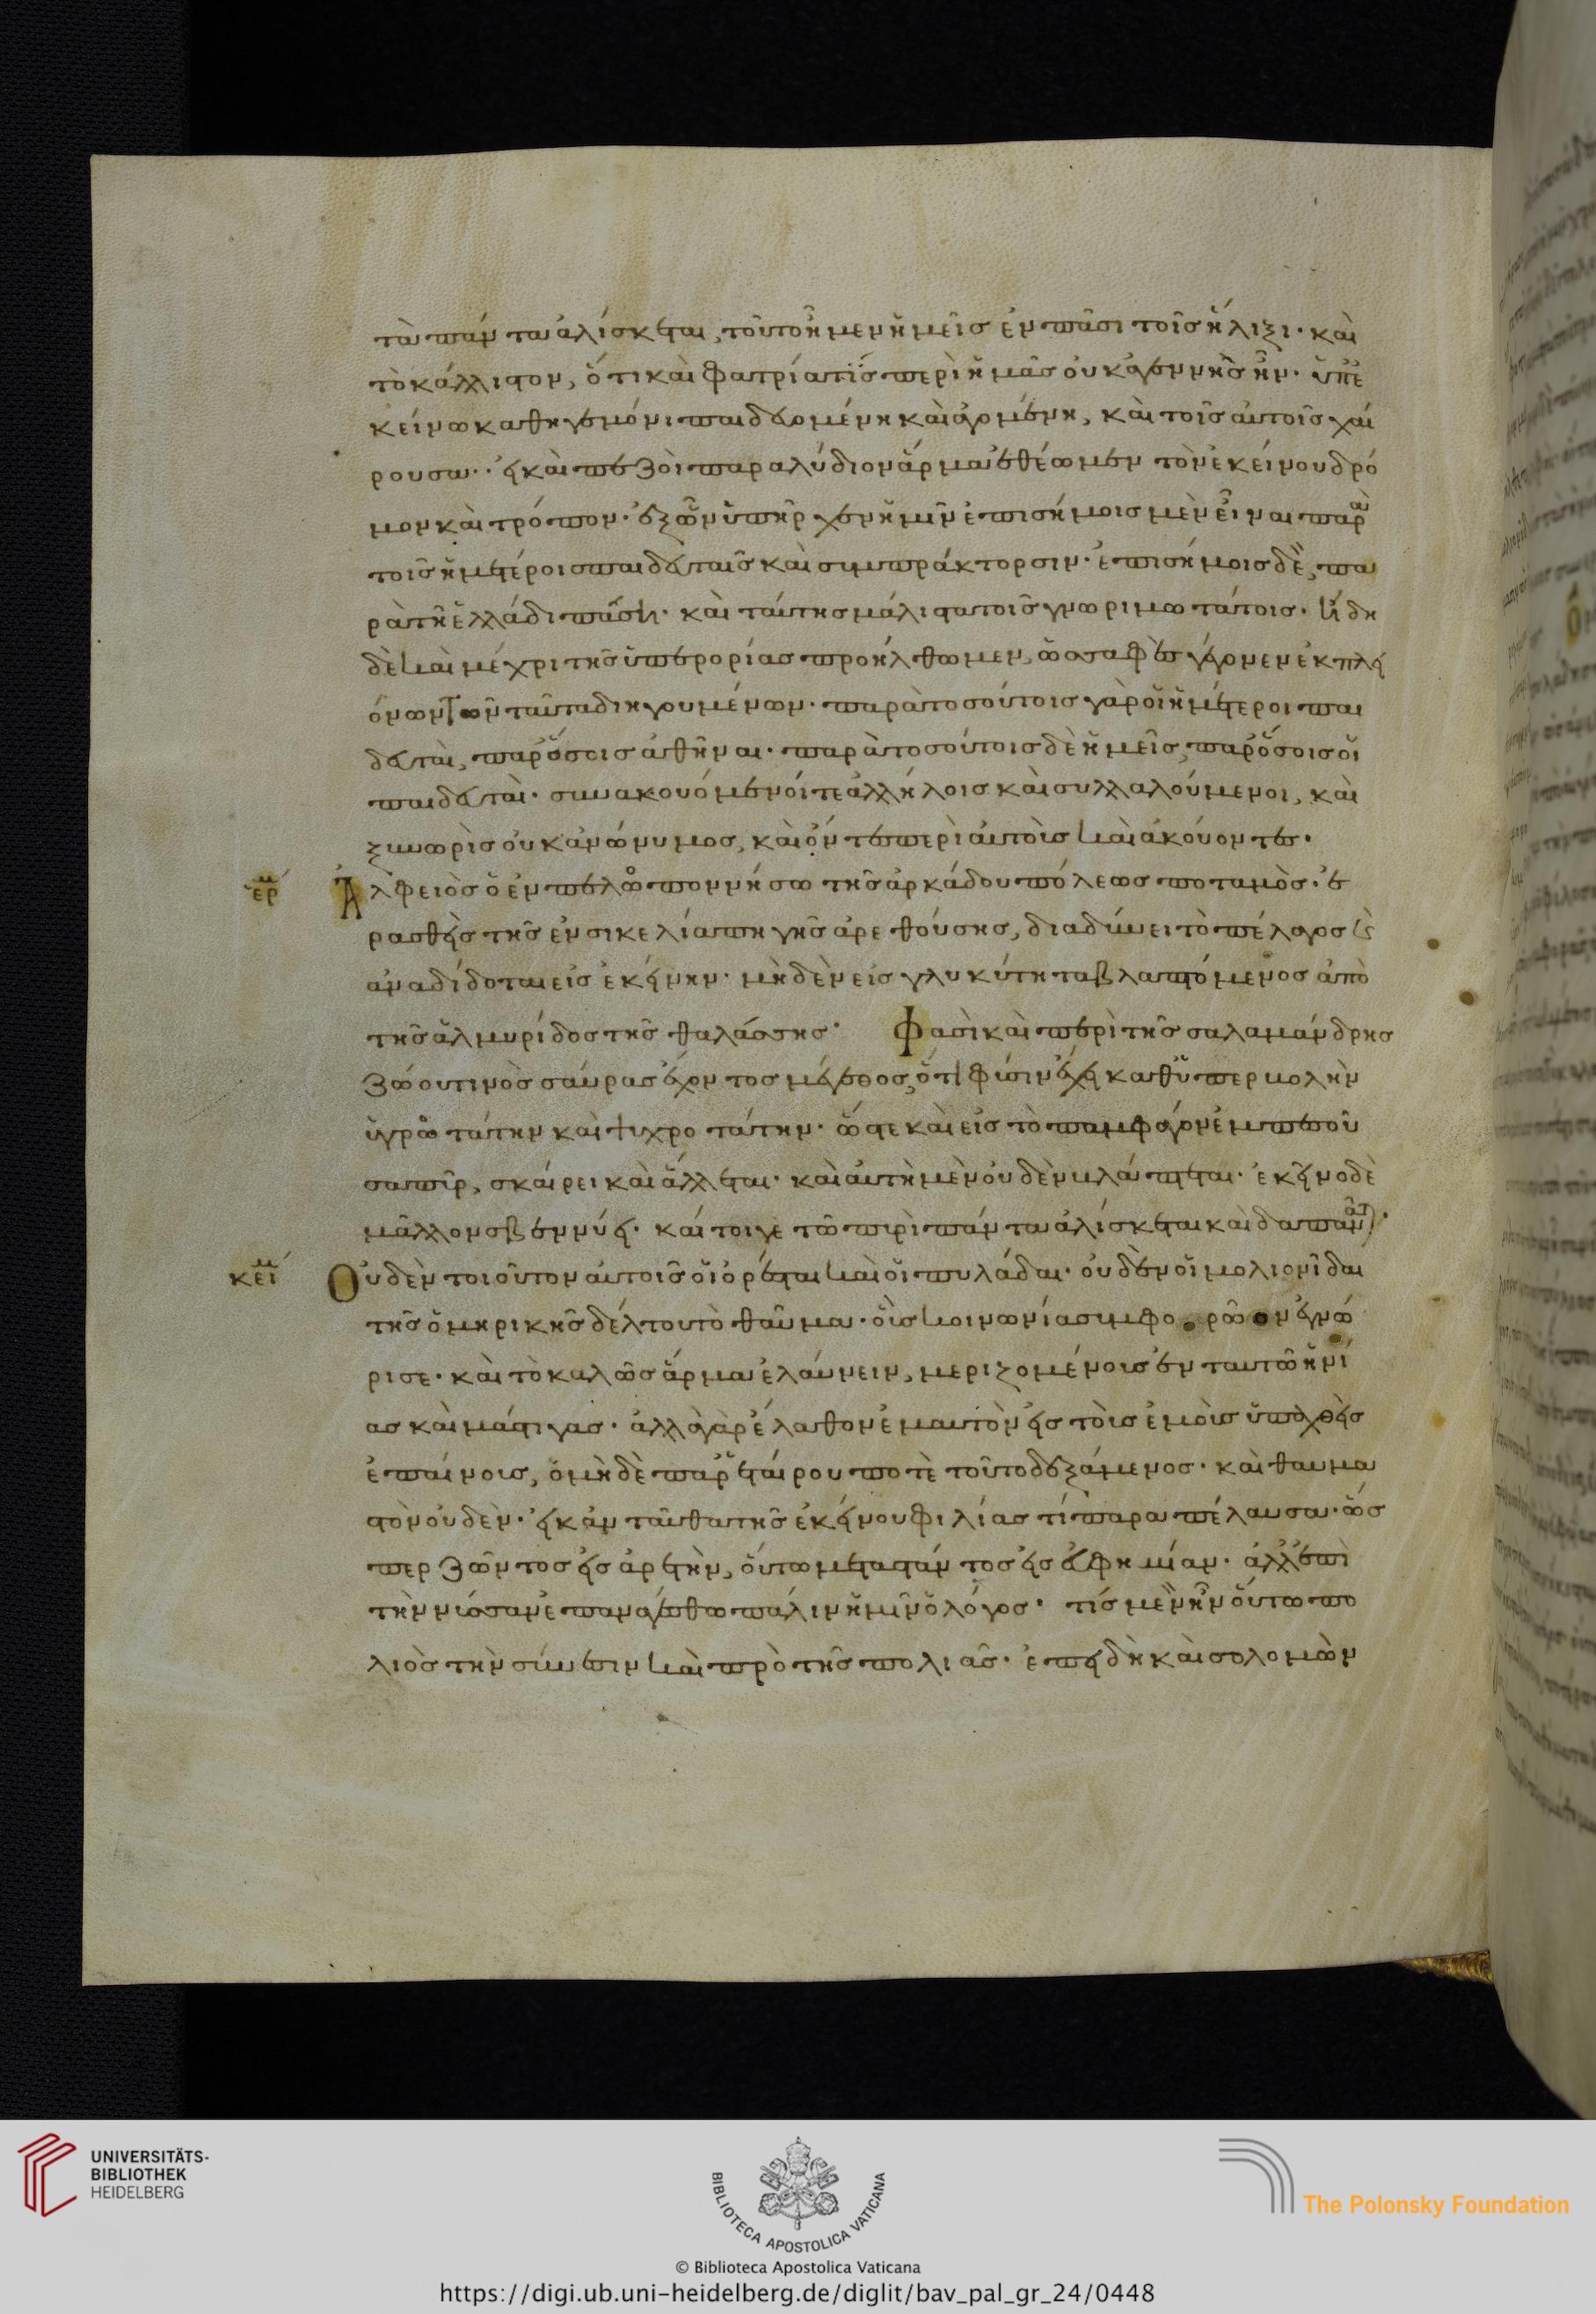 τὰ πάντα ἁλίσκεται, τοῦτο ἦμεν ἡμεῖς ἐν πᾶσι τοῖς ἥλιξι· καὶ
τὸ κάλλιστον, ὅτι καὶ φατρία τίς περὶ ἡμᾶς οὐκ ἀγεννὴς ἦν· ὑπ' ἐ
κείνω καθηγεμόνι παιδευομένη καὶ ἀγομένη, καὶ τοῖς αὐτοῖς χαί
ρουσα· εἰ καὶ πεζοὶ παρὰ λύδιον ἅρμα ἐθέωμεν τὸν ἐκείνου δρό
μον καὶ τρόπον· ἐξ ὧν ὑπῆρχεν ἡμῖν ἐπισήμοις μὲν εἶναι παρὰ
τοῖς ἡμετέροις παιδευταῖς καὶ συμπράκτορσιν· ἐπισήμοις δὲ, πα
ρὰ τῆ ἑλλάδι πάση· καὶ ταύτης μάλιστα τοῖς γνωριμωτάτοις· ἤδη
δὲ καὶ μέχρι τῆς ὑπερορίας προήλθομεν, ὡς σαφὲς γέγονεν ἐκ πλει
όνων τῶν ταῦτα διηγουμένων· παρὰ τοσούτοις γὰρ οἱ ἡμέτεροι παι
δευταὶ, παρ' ὅσοις ἀθῆναι· παρὰ τοσούτοις δὲ ἡμεῖς, παρ' ὅσοις οἱ
παιδευταὶ· συνακουόμενοί τε ἀλλήλοις καὶ συλλαλούμενοι, καὶ
ξυνωρὶς οὐκ ἀνώνυμος, καὶ ὄντες περὶ αὐτοῖς καὶ ἀκούοντες·
ἑρμ Ἀλφειὸς ὁ ἐν πελοποννήσω τῆς ἀρκάδου πόλεως ποταμὸς· ἐ
ρασθεὶς τῆς ἐν σικελία πηγῆς ἀρεθούσης, διαδύνει τὸ πέλαγος καὶ
ἀναδίδοται εἰς ἐκείνην· μηδὲν εἰς γλυκύτητα βλαπτόμενος ἀπὸ
τῆς ἁλμυρίδος τῆς θαλάσσης· Φασὶ καὶ περὶ τῆς σαλαμάνδρης
ζώου τινὸς σαύρας ἔχοντος μέγεθος, ὅτι φύσιν ἔχει καθ' ὑπερβολὴν
ὑγροτάτην καὶ ψυχροτάτην· ὥστε καὶ εἰς τὸ παμφάγον ἐμπεσοῦ
σα πῦρ, σκαίρει καὶ ἅλλεται· καὶ αὐτὴ μὲν οὐδὲν βλάπτεται· ἐκεῖνο δὲ
μᾶλλον σβεννύει· καίτοιγε τῶ πυρὶ πάντα ἁλίσκεται καὶ δαπανᾶται·
κείμ Οὐδὲν τοιοῦτον αὐτοῖς οἱ ὀρέσται καὶ οἱ πυλάδαι· οὐδὲν οἱ μολιονίδαι
τῆς ὁμηρικῆς δέλτου τὸ θαῦμα· οὓς κοινωνία συμφορῶν ἐγνώ
ρισε· καὶ τὸ καλῶς ἅρμα ἐλαύνειν, μεριζομένους ἐν ταυτῶ ἡνί
ας καὶ μάστιγας· ἀλλὰ γὰρ ἔλαθον ἐμαυτὸν εἰς τοὺς ἐμοὺς ὑπαχθεὶς
ἐπαίνους, ὁ μηδὲ παρ' ἑταίρου ποτὲ τοῦτο δεξάμενος· καὶ θαυμα
στὸν οὐδὲν· εἰ κἀνταῦθα τῆς ἐκείνου φιλίας τί παραπέλαυσα· ὥς
περ ζῶντος εἰς ἀρετὴν, οὕτω μεταστάντος εἰς εὐφημίαν· ἀλλ' ἐπὶ
τὴν νύσσαν ἐπαναγέσθω πάλιν ἡμῖν ὁ λόγος· τίς μὲν ἦν οὕτω πο
λιὸς τὴν σύνεσιν καὶ πρὸ τῆς πολιᾶς· ἐπειδὴ καὶ σολομὼν
UNIVERSITÄTS-
BIBLIOTHEK
HEIDELBERG
BIBLIOTECA APOSTOLICA VATICANA
The Polonsky Foundation
© Biblioteca Apostolica Vaticana
https://digi.ub.uni-heidelberg.de/diglit/bav_pal_gr_24/0448